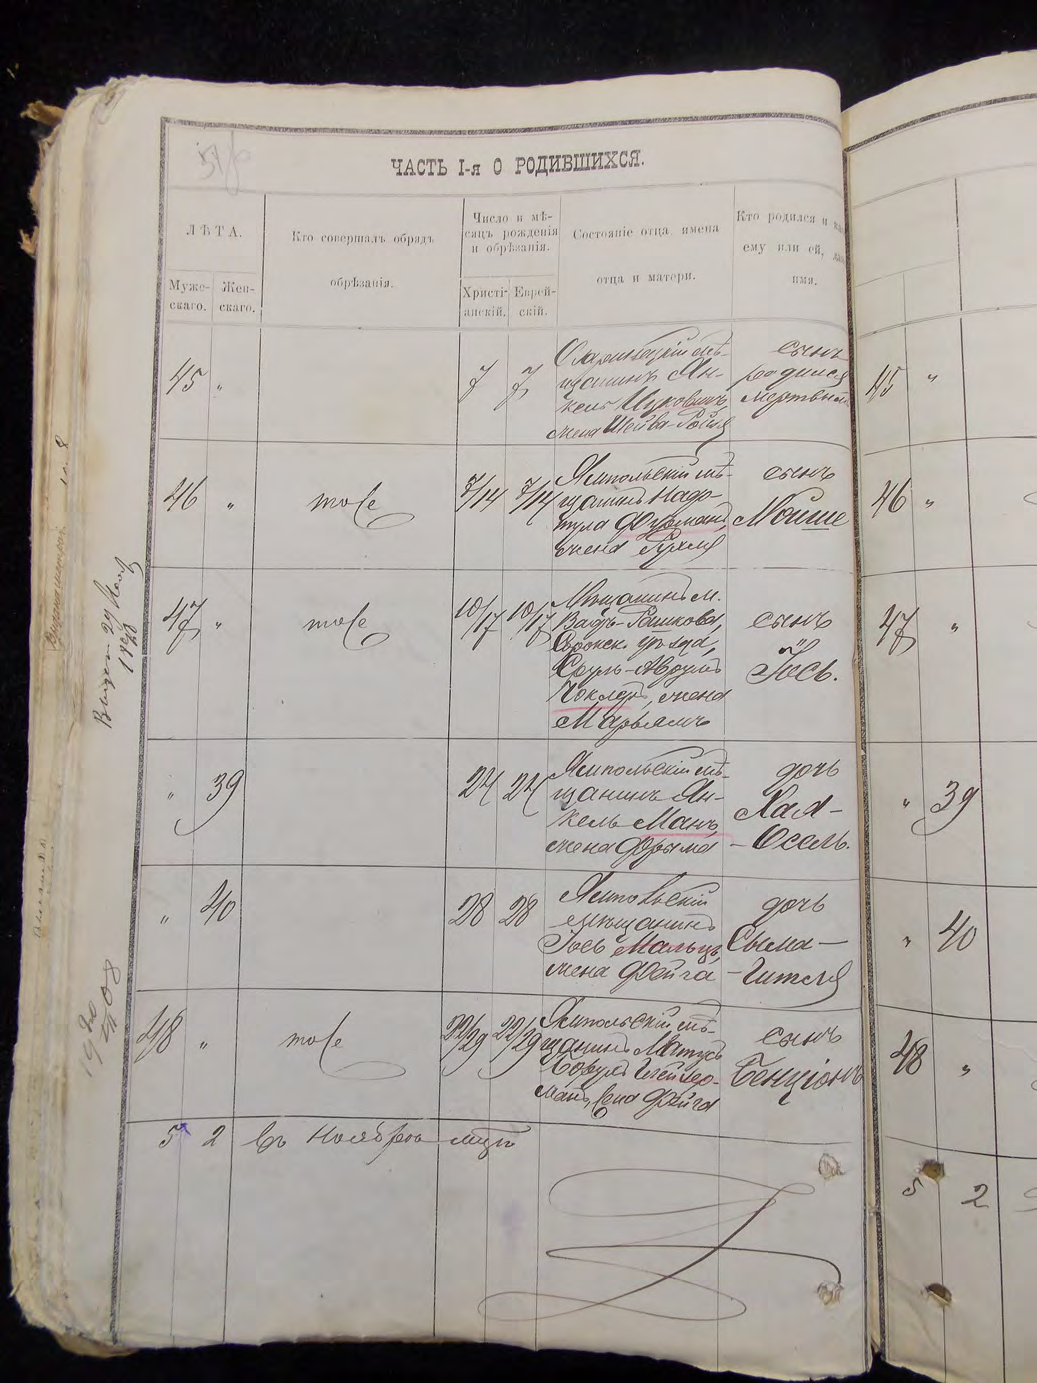 ЧАСТЬ I-я О РОДИВШИХСЯ.
ЛѢТА.
Муже-
скаго.
Жен-
скаго.
Кто совершалъ обрядъ
обрѣзанія.
Число и мѣ-
сяцъ рожденія
и обрѣзанія.
Христі-
анскій.
Еврей-
скій.
Состояніе отца, имена
отца и матери.
Кто родился и
ему или ей,
имя.
45 "
7 7
щанинъ Ян-
кель Ицковичъ
жена Шейва-Ройзя
сынъ
родился
мертвый
45 "
46 " тоже
7/14 7/14
Ямпольскій мѣ-
щанинъ Наф-
тула Фурманъ,
жена Рухля
сынъ
Мойше
46 "
47 " тоже
10/17 10/17
Мѣщанинъ м.
Вадъ-Рашкова,
Сорокск. уѣзда,
Сруль-Аврумъ
жена
Марьямъ
сынъ
Іосъ.
47 "
" 39
24 24
Ямпольскій мѣ-
щанинъ Ян-
кель Манъ,
жена Фрыма
дочь
Хая-
-Осель.
" 39
" 40
28 28
Ямпольскій
мѣщанинъ
Іосъ Мальцъ,
жена Фейга
дочь
Сыма-
-Гитля
" 40
48 " тоже
22/29 22/29
Ямпольскій мѣ-
щанинъ Матусъ
манъ, жена Фейга
сынъ
Бенціонъ
48 "
5 2 въ Ноябрѣ мцѣ
5 2